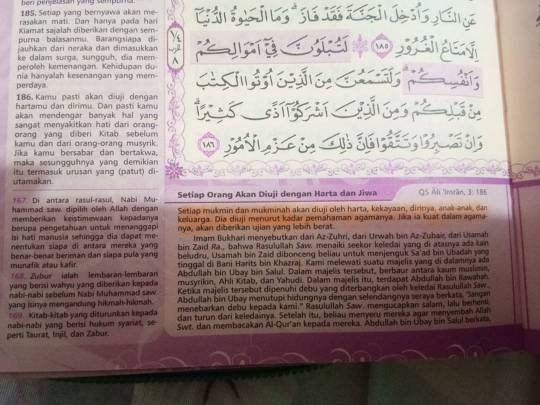 beri penjelasan yang sempurna.
185. Setiap yang bernyawa akan me-
rasakan mati. Dan hanya pada hari
Kiamat sajalah diberikan dengan sem-
purna balasanmu. Barangsiapa di-
jauhkan dari neraka dan dimasukkan
ke dalam surga, sungguh, dia mem-
peroleh kemenangan. Kehidupan du-
nia hanyalah kesenangan yang mem-
perdaya.
186. Kamu pasti akan diuji dengan
hartamu dan dirimu. Dan pasti kamu
akan mendengar banyak hal yang
sangat menyakitkan hati dari orang-
orang yang diberi Kitab sebelum
kamu dan dari orang-orang musyrik.
Jika kamu bersabar dan bertakwa,
maka sesungguhnya yang demikian
itu termasuk urusan yang (patut) di-
utamakan.
عَنِ النَّارِ وَأُدْخِلَ الْجَنَّةَ فَقَدْ فَازَ ۗ وَمَا الْحَيٰوةُ الدُّنْيَآ
اِلَّا مَتَاعُ الْغُرُوْرِ ١٨٥ ۞ لَتُبْلَوُنَّ فِيْٓ اَمْوَالِكُمْ
وَاَنْفُسِكُمْۗ وَلَتَسْمَعُنَّ مِنَ الَّذِيْنَ اُوْتُوا الْكِتٰبَ
مِنْ قَبْلِكُمْ وَمِنَ الَّذِيْنَ اَشْرَكُوْٓا اَذًى كَثِيْرًا ۗ
وَاِنْ تَصْبِرُوْا وَتَتَّقُوْا فَاِنَّ ذٰلِكَ مِنْ عَزْمِ الْاُمُوْرِ ١٨٦
167. Di antara rasul-rasul, Nabi Mu-
hammad saw. dipilih oleh Allah dengan
memberikan keistimewaan kepadanya
berupa pengetahuan untuk menanggapi
isi hati manusia sehingga dia dapat me-
nentukan siapa di antara mereka yang
benar-benar beriman dan siapa pula yang
munafik atau kafir.
168. Zubur ialah lembaran-lembaran
yang berisi wahyu yang diberikan kepada
nabi-nabi sebelum Nabi Muhammad saw.
yang isinya mengandung hikmah-hikmah.
169. Kitab-kitab yang diturunkan kepada
nabi-nabi yang berisi hukum syariat, se-
perti Taurat, Injil, dan Zabur.
Setiap Orang Akan Diuji dengan Harta dan Jiwa
QS Āli 'Imrān, 3: 186
Setiap mukmin dan mukminah akan diuji oleh harta, kekayaan, dirinya, anak-anak, dan
keluarga. Dia diuji menurut kadar pemahaman agamanya. Jika ia kuat dalam agama-
nya, akan diberikan ujian yang lebih berat.
Imam Bukhari menyebutkan dari Az-Zuhri, dari Urwah bin Az-Zubair, dari Usamah
bin Zaid Ra., bahwa Rasulullah Saw. menaiki seekor keledai yang di atasnya ada kain
beludru, Usamah bin Zaid dibonceng beliau untuk menjenguk Sa'ad bin Ubadah yang
tinggal di Bani Harits bin Khazraj. Kami melewati suatu majelis yang di dalamnya ada
Abdullah bin Ubay bin Salul. Dalam majelis tersebut, berbaur antara kaum muslimin,
musyrikin, Ahli Kitab, dan Yahudi. Dalam majelis itu, terdapat Abdullah bin Rawahah.
Ketika majelis tersebut dipenuhi debu yang diterbangkan oleh keledai Rasulullah Saw.,
Abdullah bin Ubay menutupi hidungnya dengan selendangnya seraya berkata, "Jangan
menebarkan debu kepada kami." Rasulullah Saw. mengucapkan salam, lalu berhenti
dan turun dari keledainya. Setelah itu, beliau menyeru mereka agar menyembah Allah
Swt. dan membacakan Al-Qur'an kepada mereka. Abdullah bin Ubay bin Salul berkata,